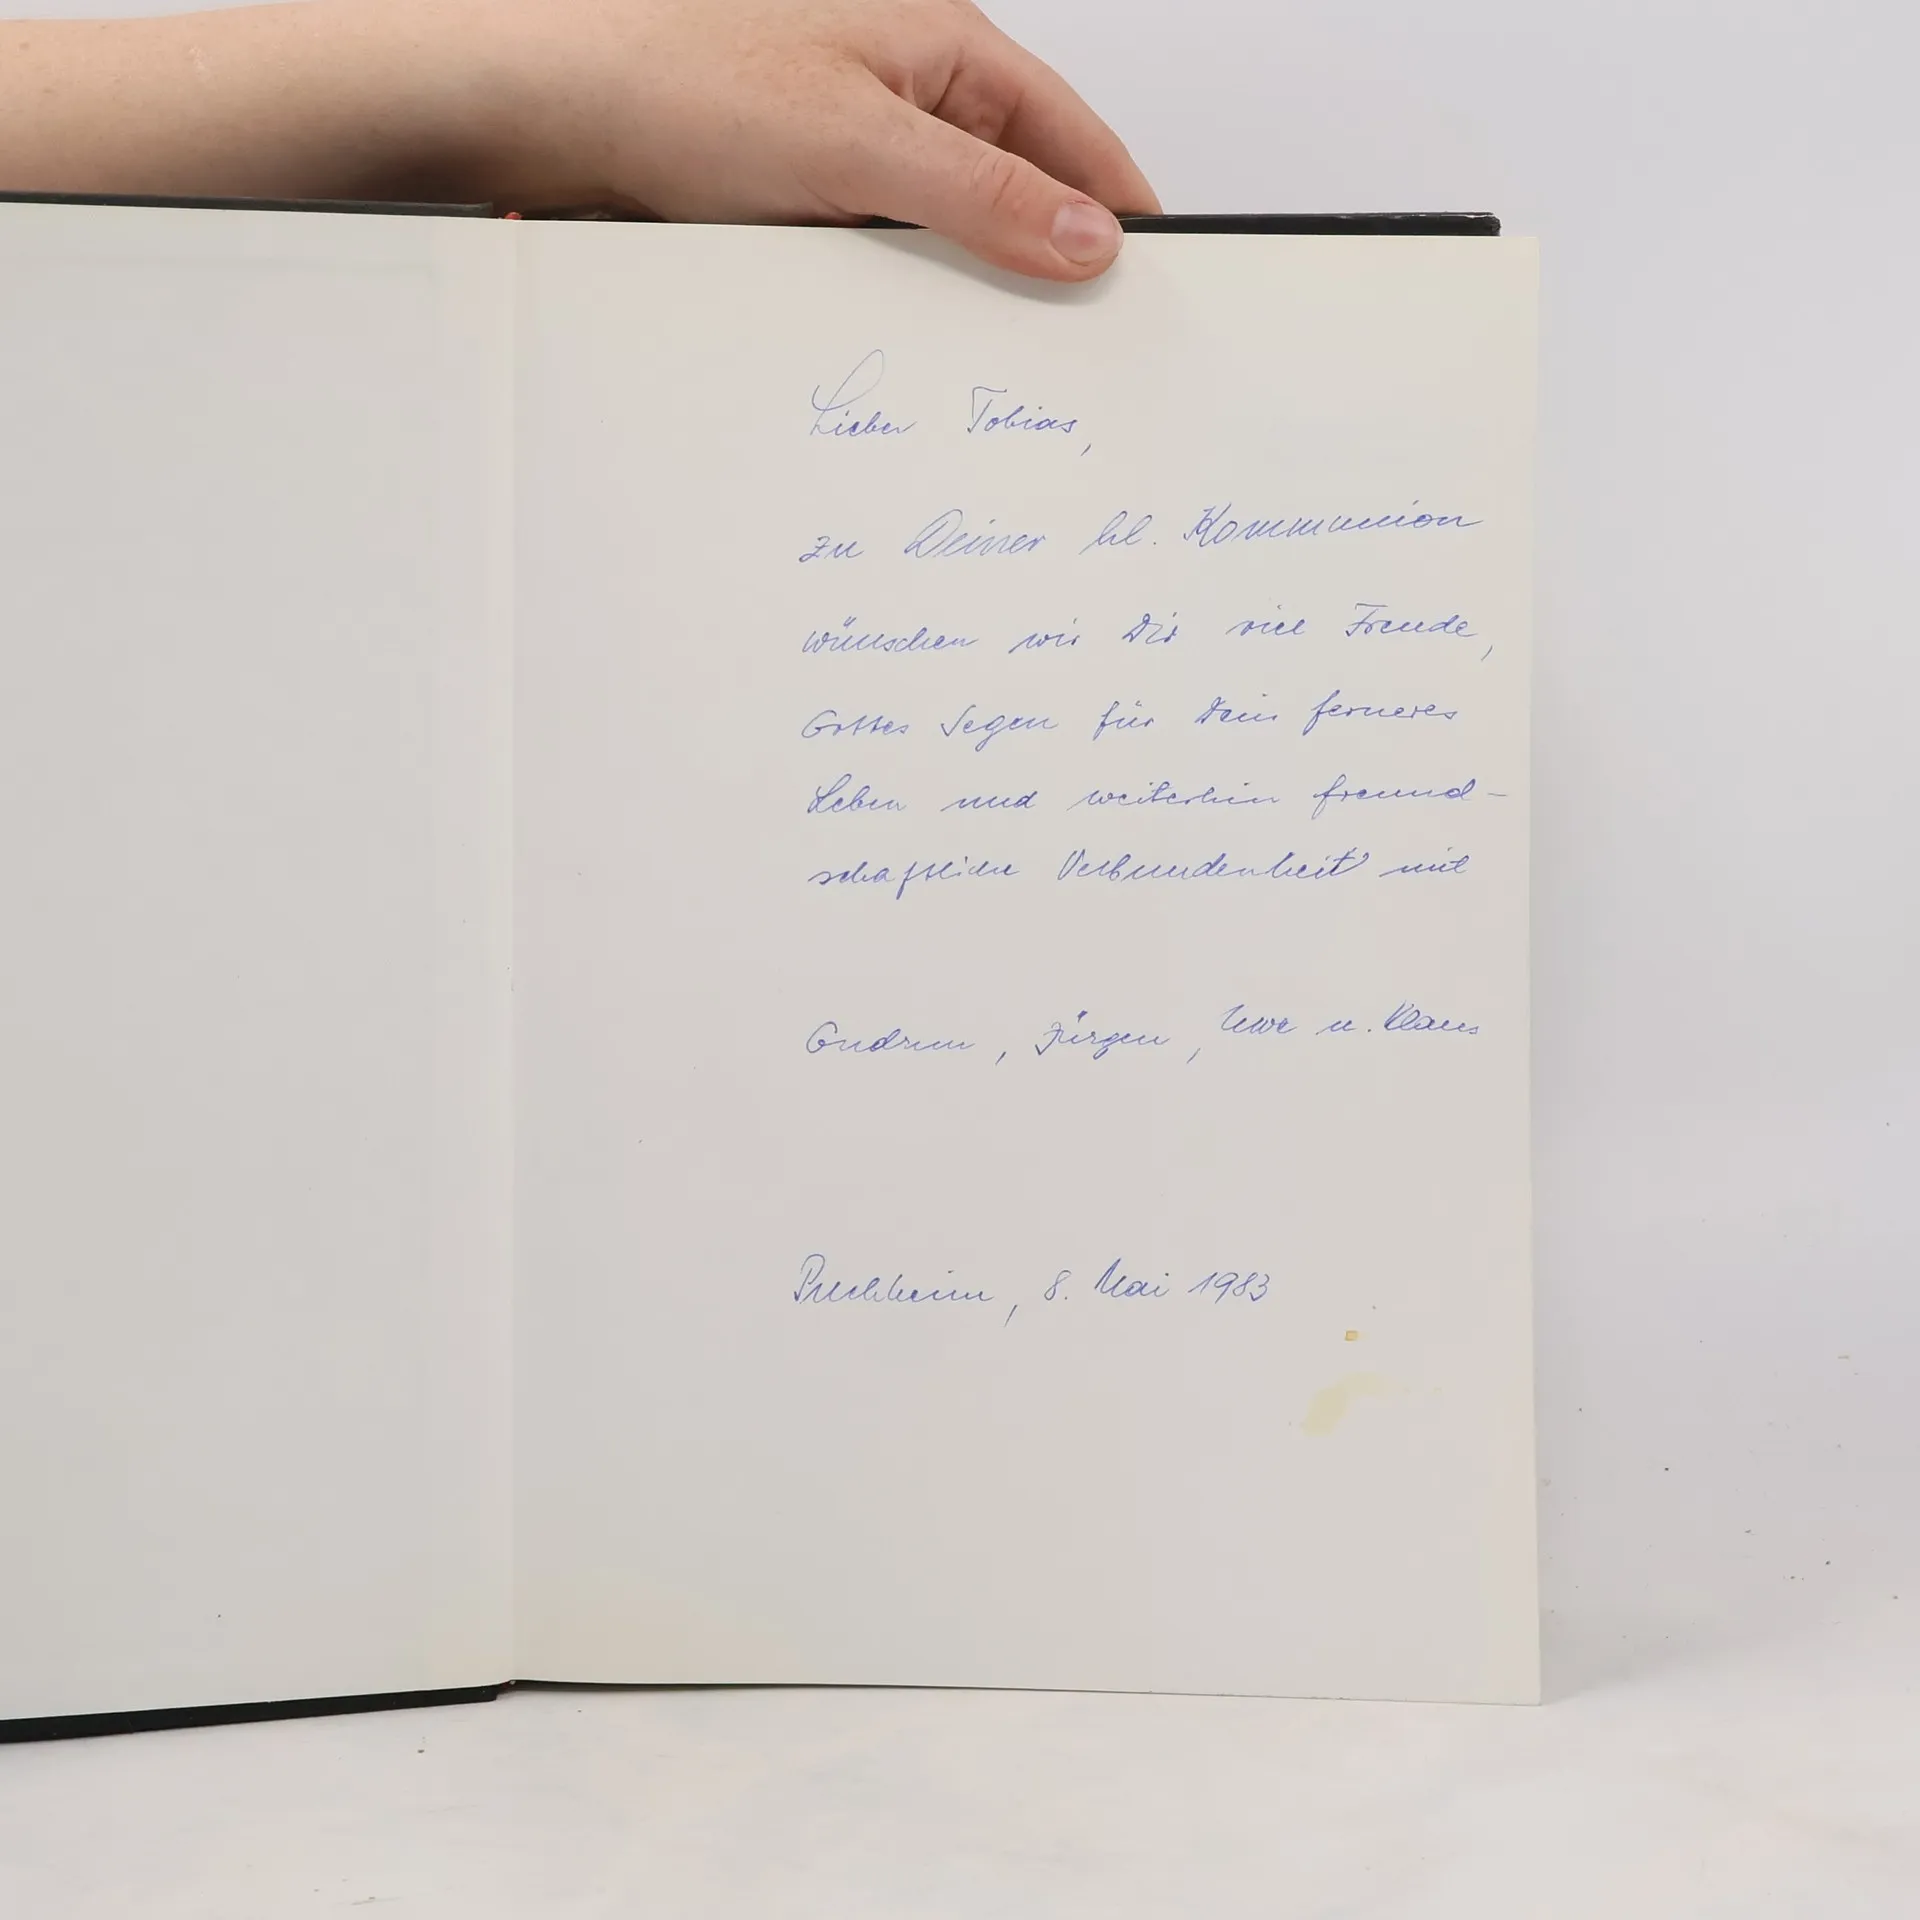 Lieber Tobias,
zu Deiner hl. Kommunion
wünschen wir Dir viel Freude,
Gottes Segen für Dein ferneres
Leben und weiterhin freund-
schaftliche Verbundenheit mit
Gudrun, Jürgen, Uwe u. Klaus
Puchheim, 8. Mai 1983